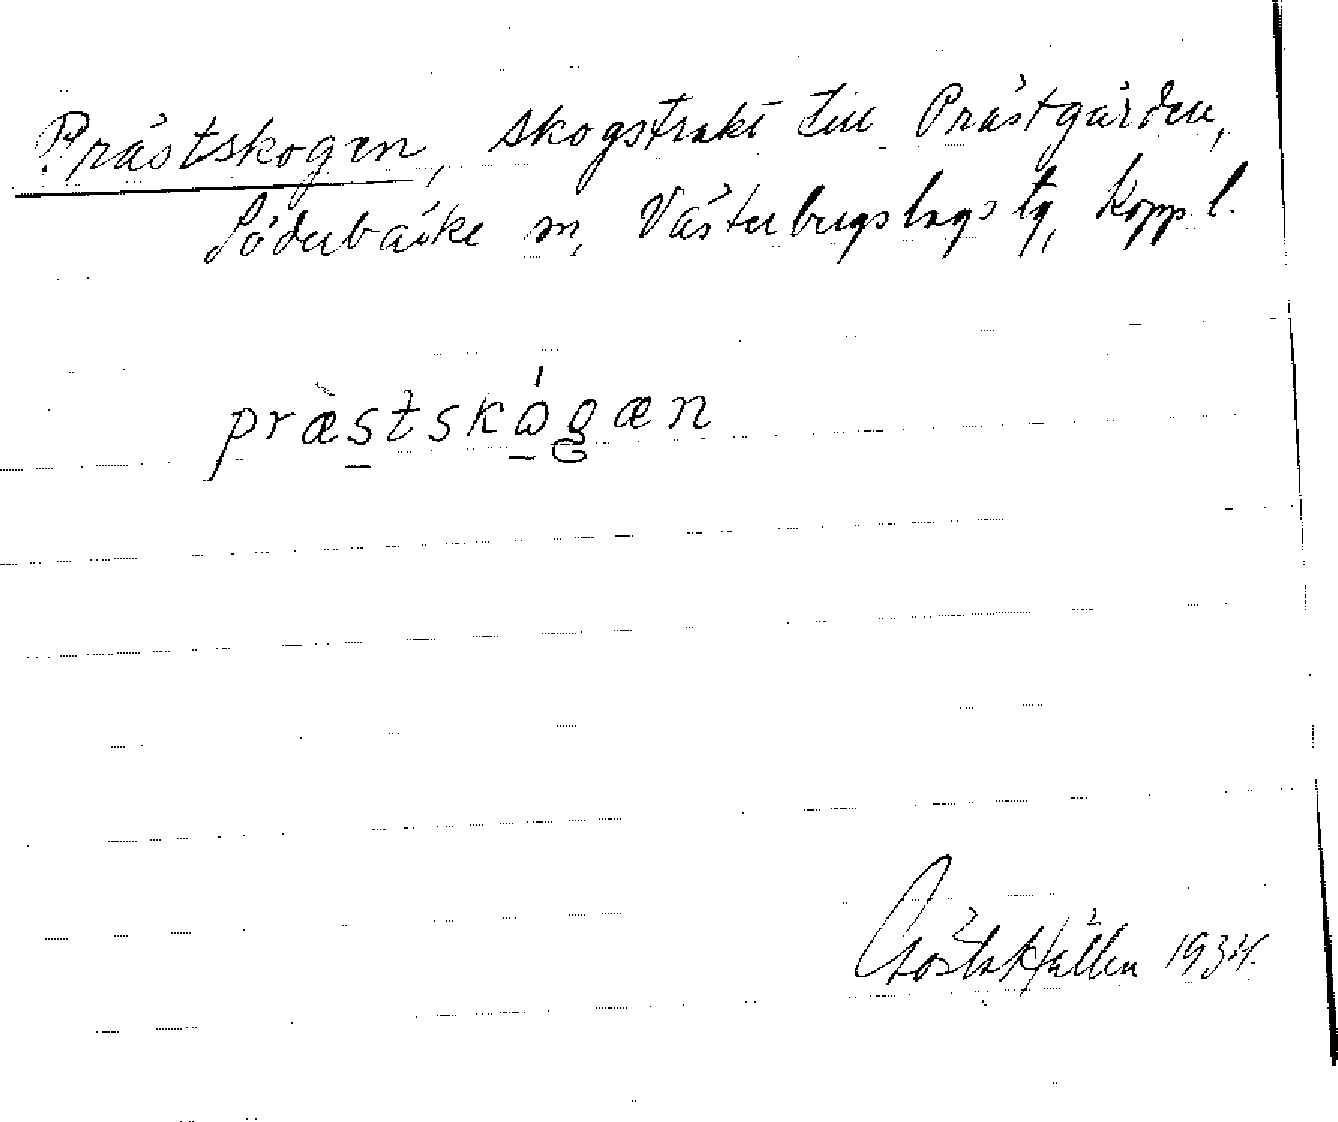 Prästskogen, skogstrakt till Prästgården,
Söderbärke sn, Västerbergslags tg, Kopp. l.
præ̀stskώgæn
Gösta Hallén 1934.